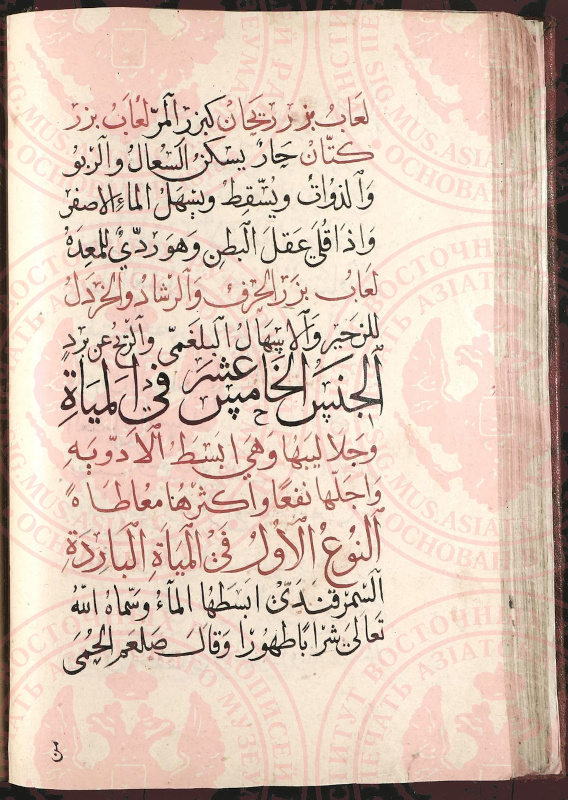 لعاب بزر ريحان كبزر المرّ لعاب بزر
كتّان حارّ يسكن السّعال والرّبو
والذوات ويسقط ويسهل الماء الاصفر
واذا قلي عقل البطن وهو رديّ للمعدة
لعاب بزر الحرف والرشاد والخردل
للزحير والاسهال البلغمي والزخ عن برد
الجنس الخامس عشر في المياة
وجلا ليبها وهي ابسط الادوية
واجلّها نفعا واكثرها معاطاة
النوع الاول في المياة الباردة
السمرقندي ابسطها المآء وسماه الله
تعالى شرابا طهورا وقال صلعم الحمى